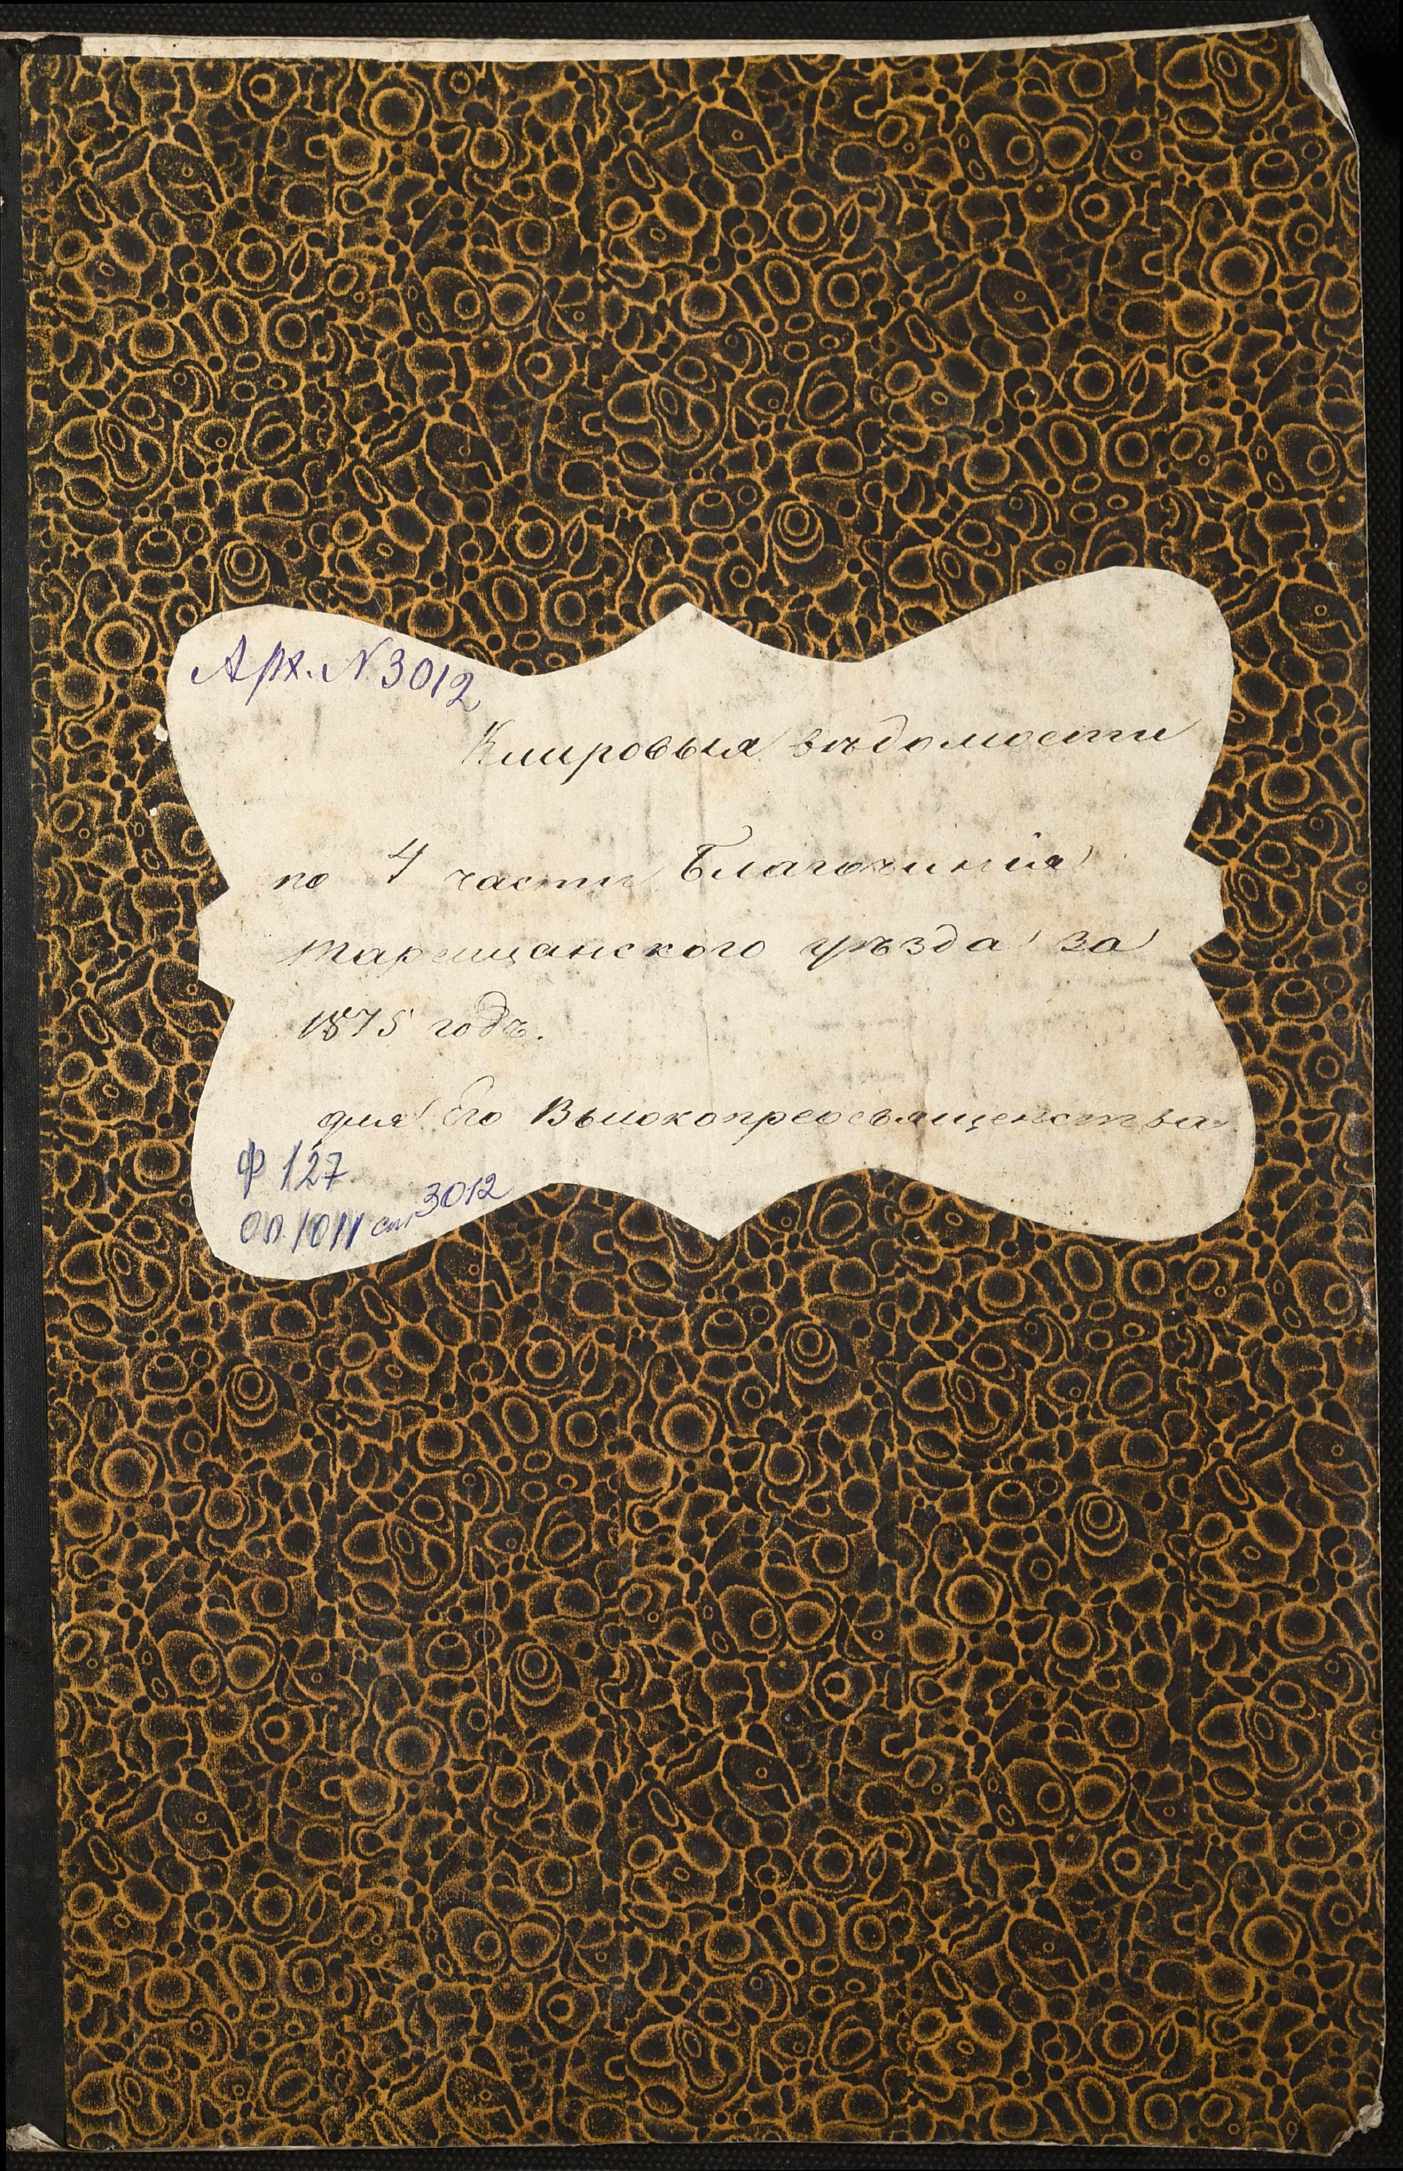 Арх. N 3012
Клировыя вѣдомости
по 4 части Благочинія
таращанского уѣзда за
1875 годъ.
для Его Высокопреосвященства
Ф 127
Оп. 1011 спр 3012